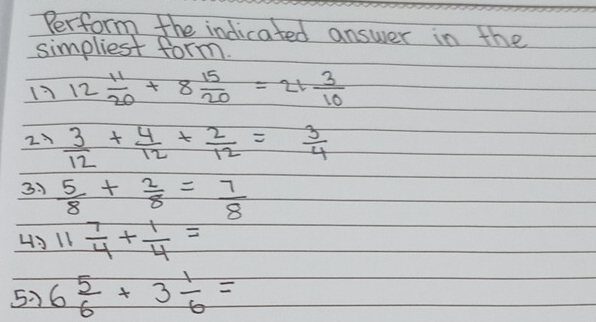 Perform the indicated answer in the
simpliest form.
1.) 12 11/20 + 8 15/20 = 21 3/10
2.) 3/12 + 4/12 + 2/12 = 3/4
3.) 5/8 + 2/8 = 7/8
4.) 11 7/4 + 1/4 =
5.) 6 5/6 + 3 1/6 =